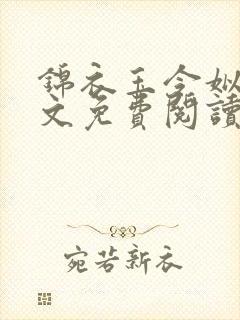 錦衣玉令姒
文免費閱讀
宛若新衣